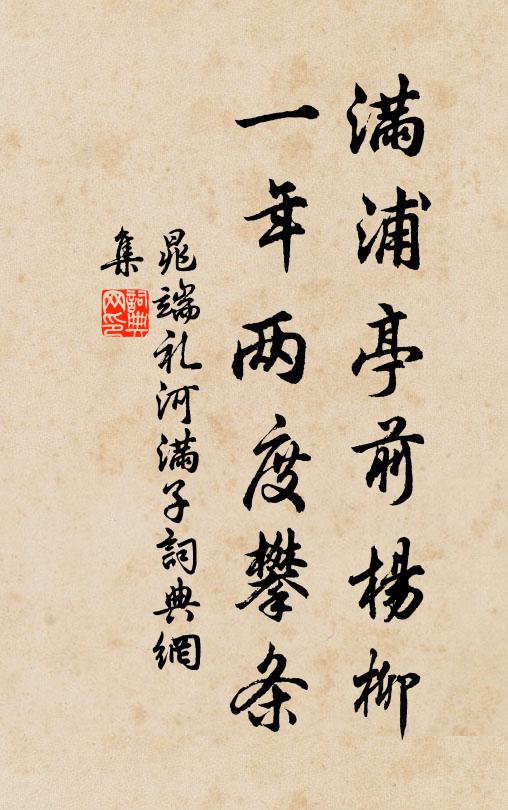 满浦亭前楊柳
一年两度攀条
晁端礼河满子詞典網
集
詞典
网印